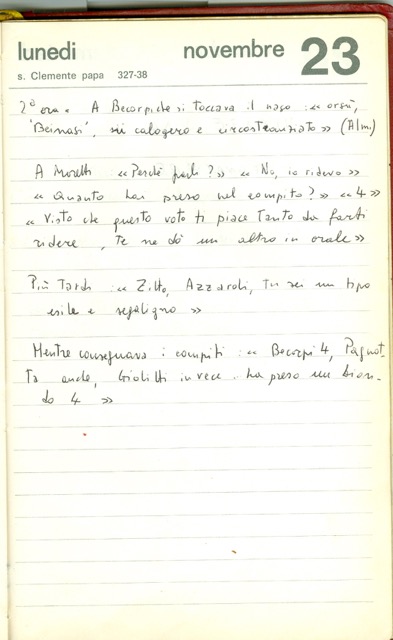 lunedì
novembre 23
s. Clemente papa 327-38
2ª ora « A Becorpi che si toccava il naso : « orsù,
'Beinasi', sii calogero e circostanziato » (Alm.)
A Moretti « Perché parli ? » « No, io ridevo »
« Quanto hai preso nel compito ? » « 4 »
« Visto che questo voto ti piace tanto da farti
ridere, te ne dò un altro in orale »
Più Tardi : « Zitto, Azzaroli, tu sei un tipo
esile e segaligno »
Mentre consegnava i compiti : « Becorpi 4, Pagnot-
ta anche, Giolitti invece ha preso un bion-
do 4 »